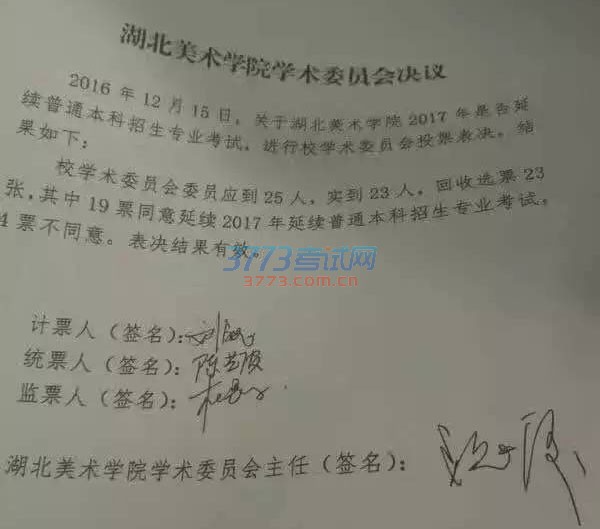 湖北美术学院学术委员会决议
2016 年 12 月 15 日，关于湖北美术学院 2017 年是否延
续普通本科招生专业考试，进行校学术委员会投票表决。结
果如下：
校学术委员会委员应到 25 人，实到 23 人，回收选票 23
张，其中 19 票同意延续 2017 年延续普通本科招生专业考试。
4 票不同意。表决结果有效。
3773考试网
3773.com.cn
计票人（签名）：
统票人（签名）：
监票人（签名）：
湖北美术学院学术委员会主任（签名）：